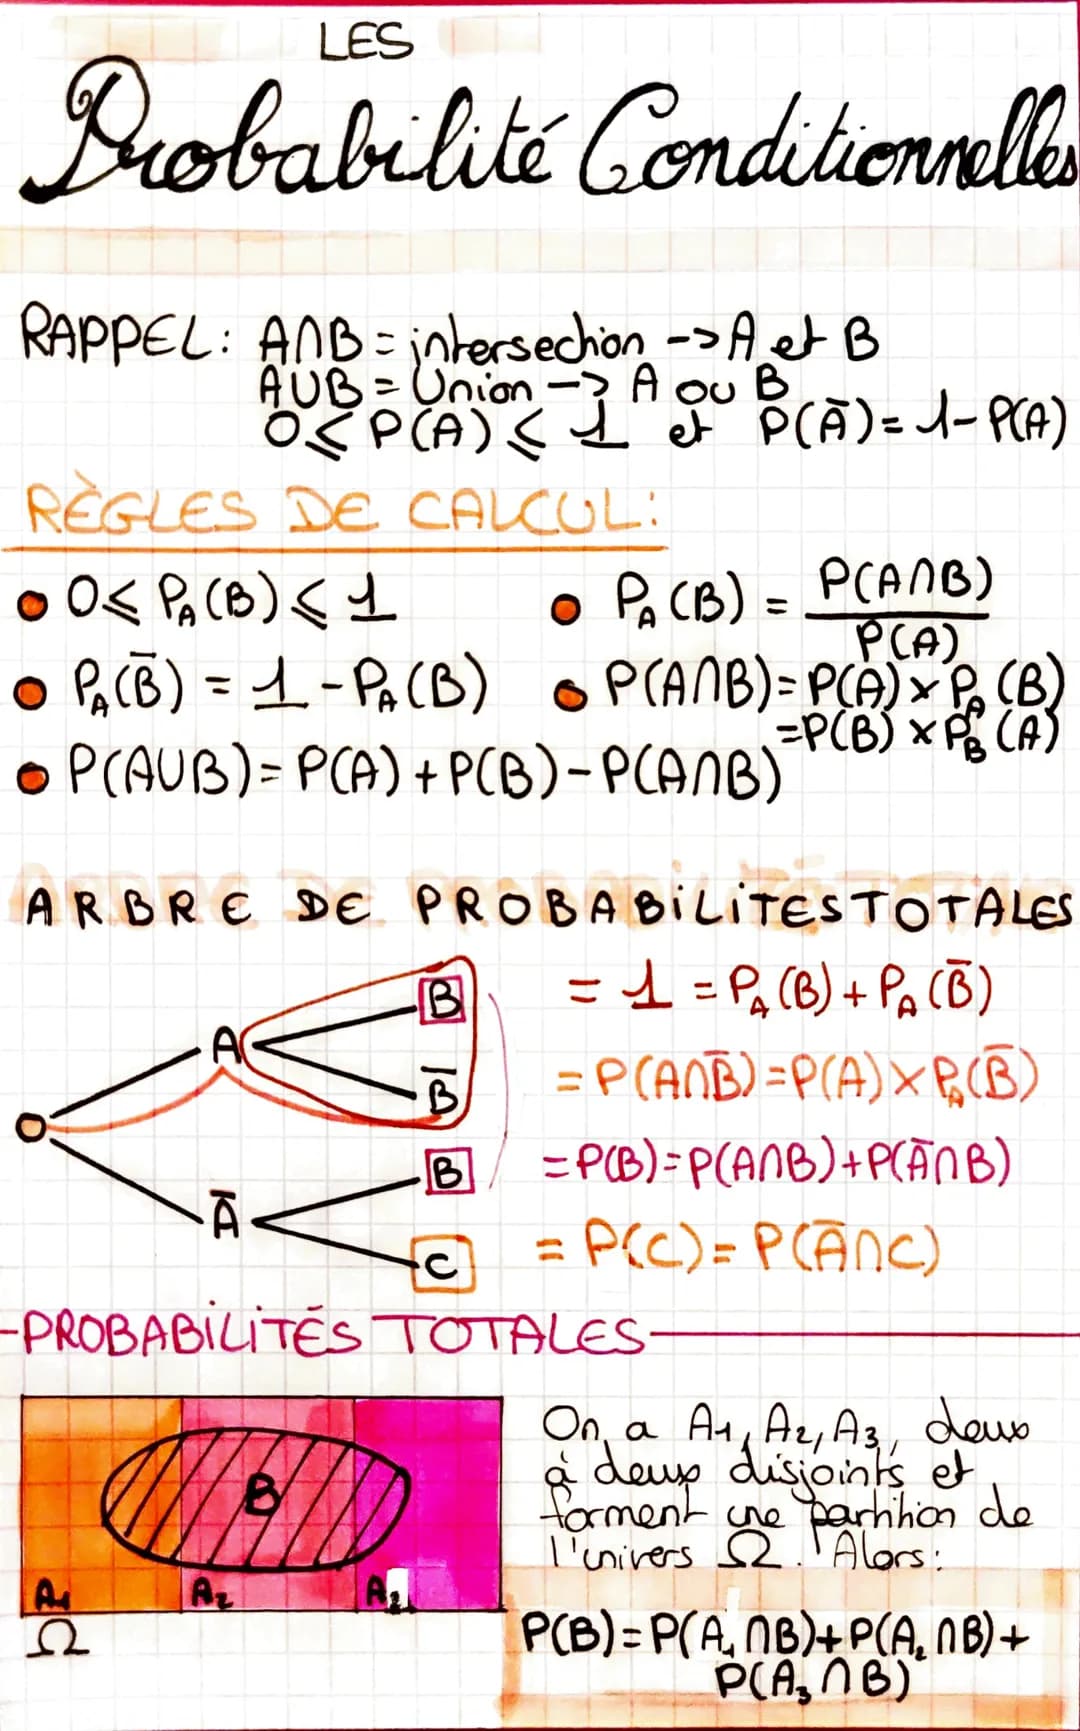 LES
Probabilité Conditionnelles
RAPPEL: A∩B = intersection -> A et B
A∪B = Union -> A ou B
0 ⩽ P(A) ⩽ 1 et P(Ā) = 1 - P(A)
RÈGLES DE CALCUL:
0 ⩽ P_A(B) ⩽ 1
P_A(B) = P(A∩B) / P(A)
P_A(B̄) = 1 - P_A(B)
P(A∩B) = P(A) × P_A(B)
= P(B) × P_B(A)
P(A∪B) = P(A) + P(B) - P(A∩B)
ARBRE DE PROBABILITÉS TOTALES
B = 1 = P_A(B) + P_A(B̄)
A
B̄ = P(A∩B̄) = P(A) × P_A(B̄)
B = P(B) = P(A∩B) + P(Ā∩B)
Ā
C = P(C) = P(Ā∩C)
-PROBABILITÉS TOTALES
On a A₁, A₂, A₃, deux
à deux disjoints et
forment une partition de
l'univers Ω. Alors:
B
A₁ A₂
Ω
P(B) = P(A₁∩B) + P(A₂∩B) +
P(A₃∩B)